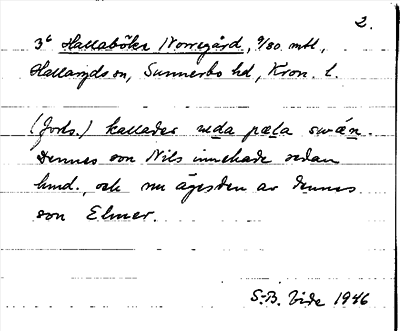 2.
3⁶ Hallaböke Norregård, 9/80 mtl,
Hallaryds sn, Sunnerbo hd, Kron. l.
(forts.) kallades uda pæla swæn.
Dennes son Nils innehade sedan
hmd., och nu äges den av dennes
son Elmer.
S-B. Vide 1946